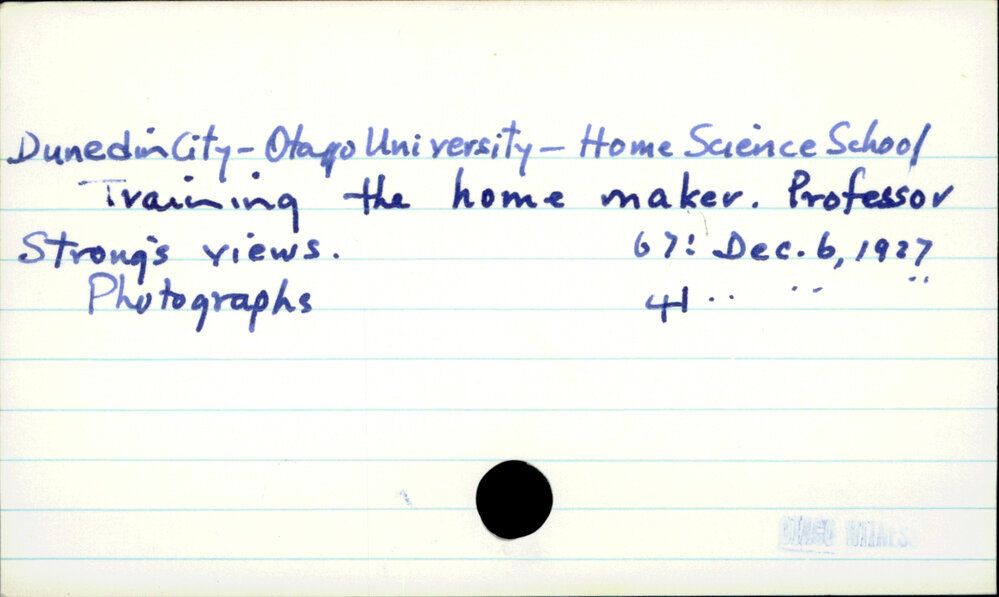 Dunedin City - Otago University - Home Science School
Training the home maker. Professor
Strong's views. 67: Dec. 6, 1927
Photographs 41 .. .. ..
OTAGO WITNESS